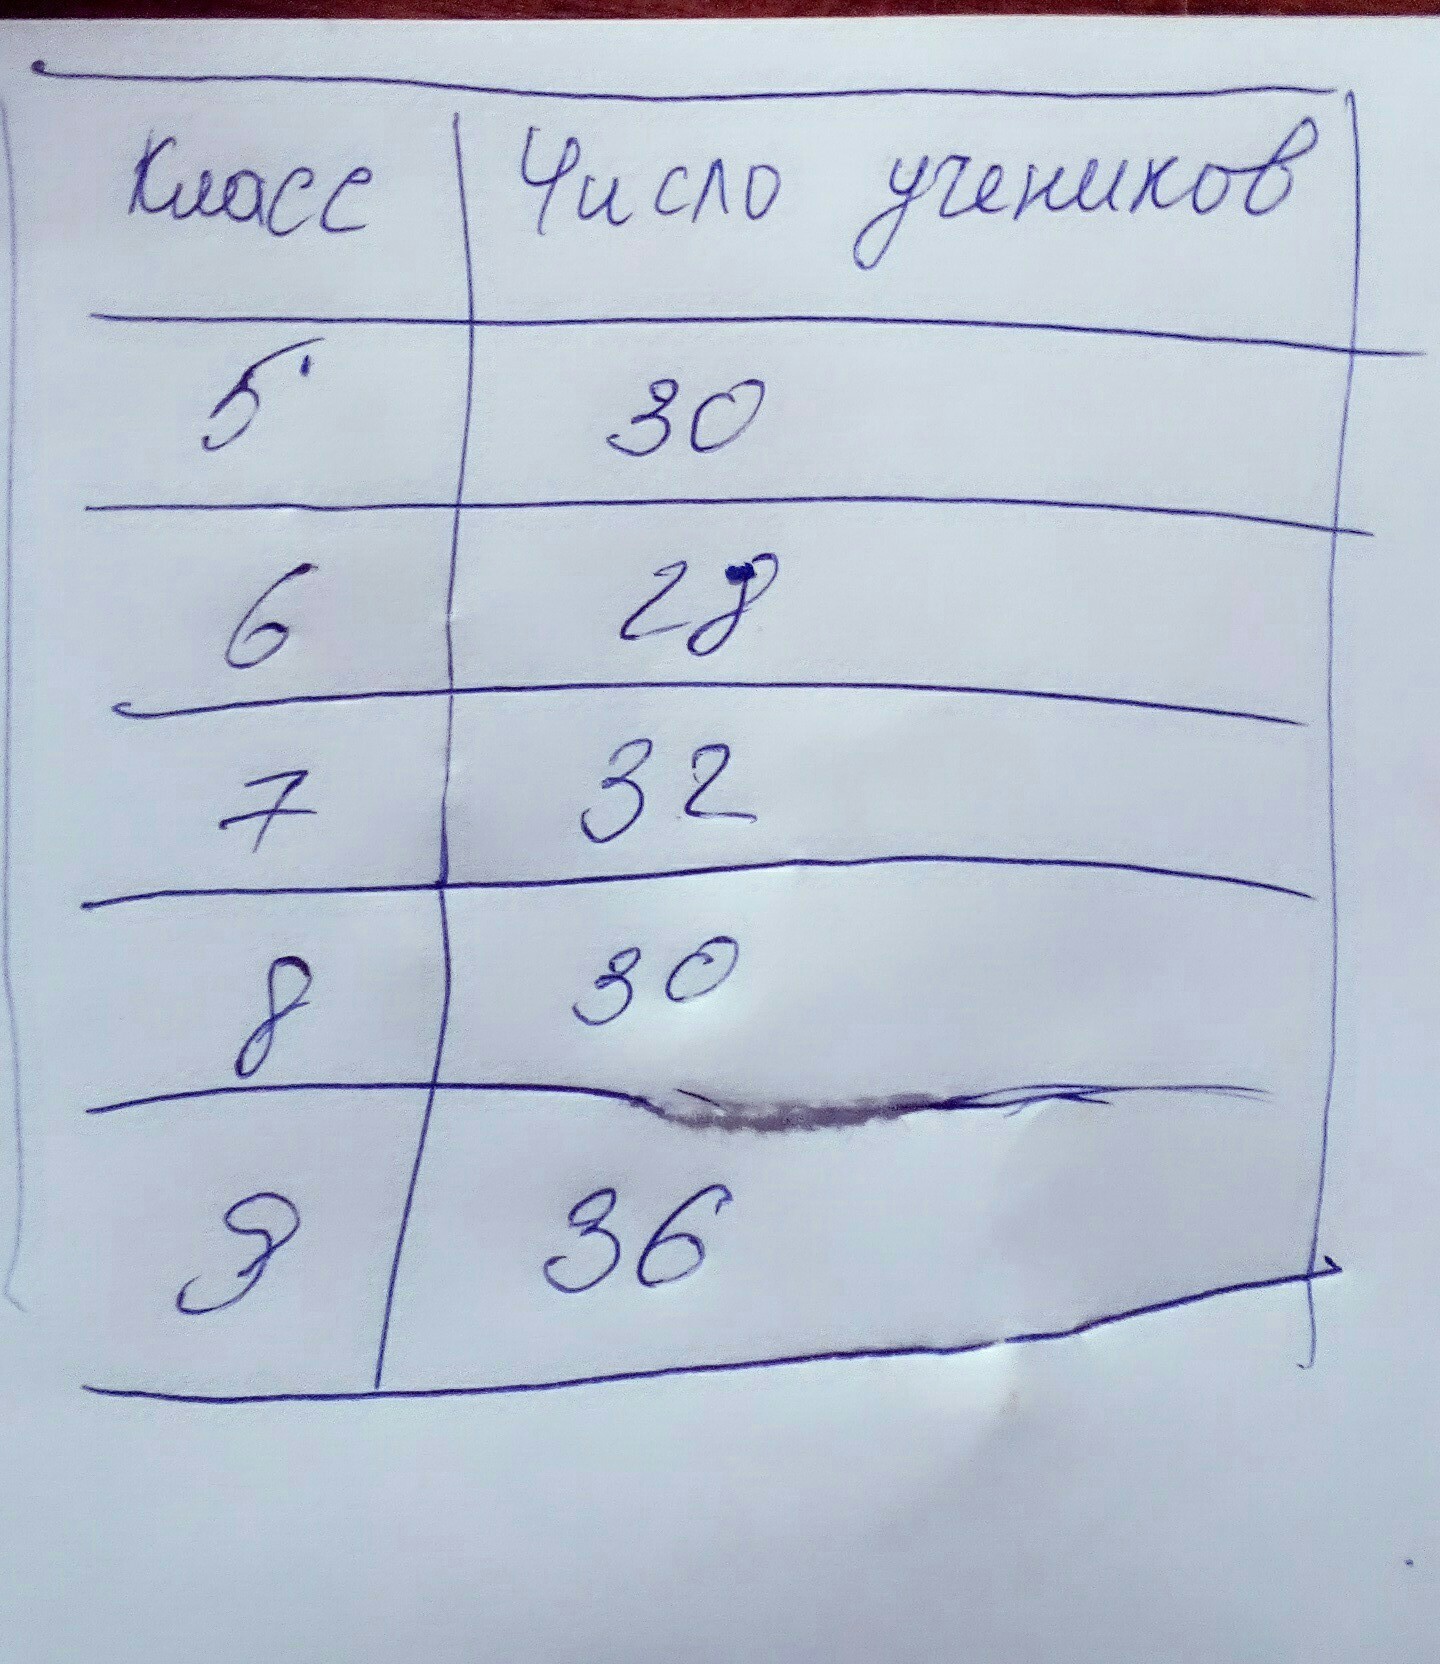 Класс Число учеников
5 30
6 28
7 32
8 30
9 36